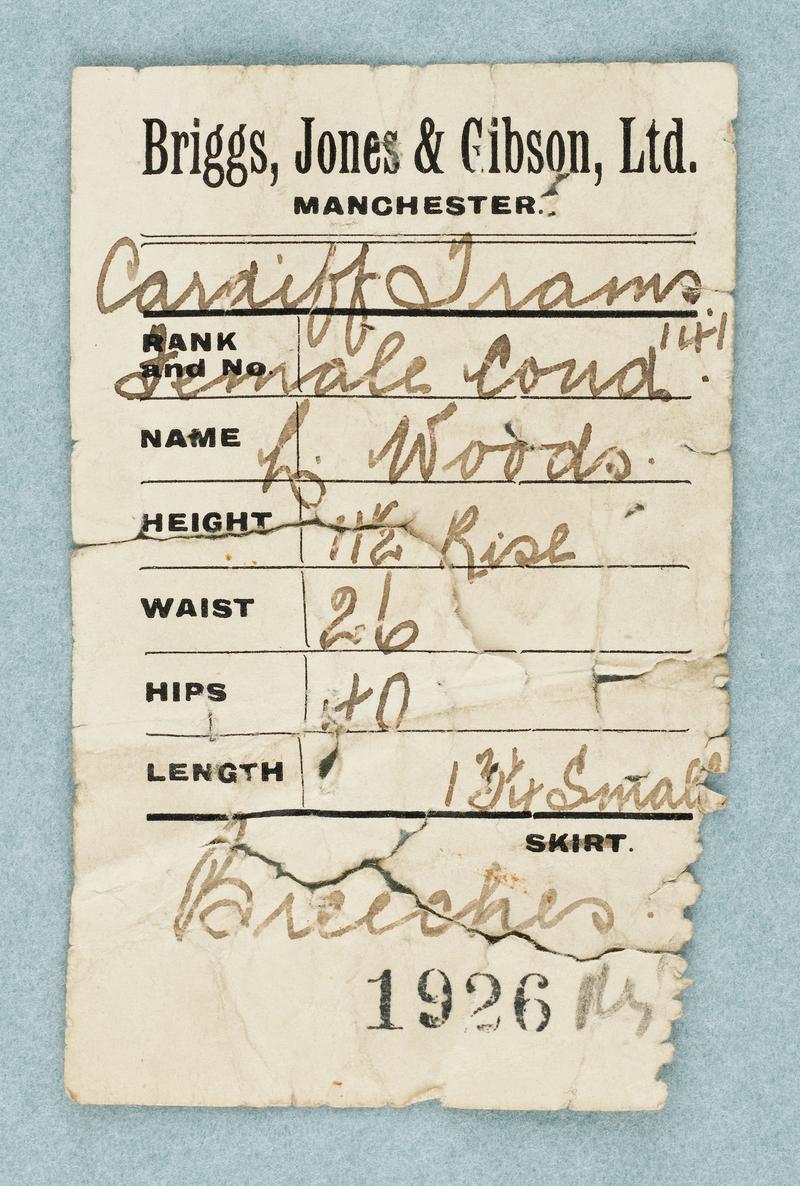 Briggs, Jones & Gibson, Ltd.
MANCHESTER.
Cardiff Trams
RANK and No. Female Cond. 141
NAME L. Woods.
HEIGHT 11½ Rise
WAIST 26
HIPS 40
LENGTH 13¼ Small
SKIRT.
Breeches.
1926